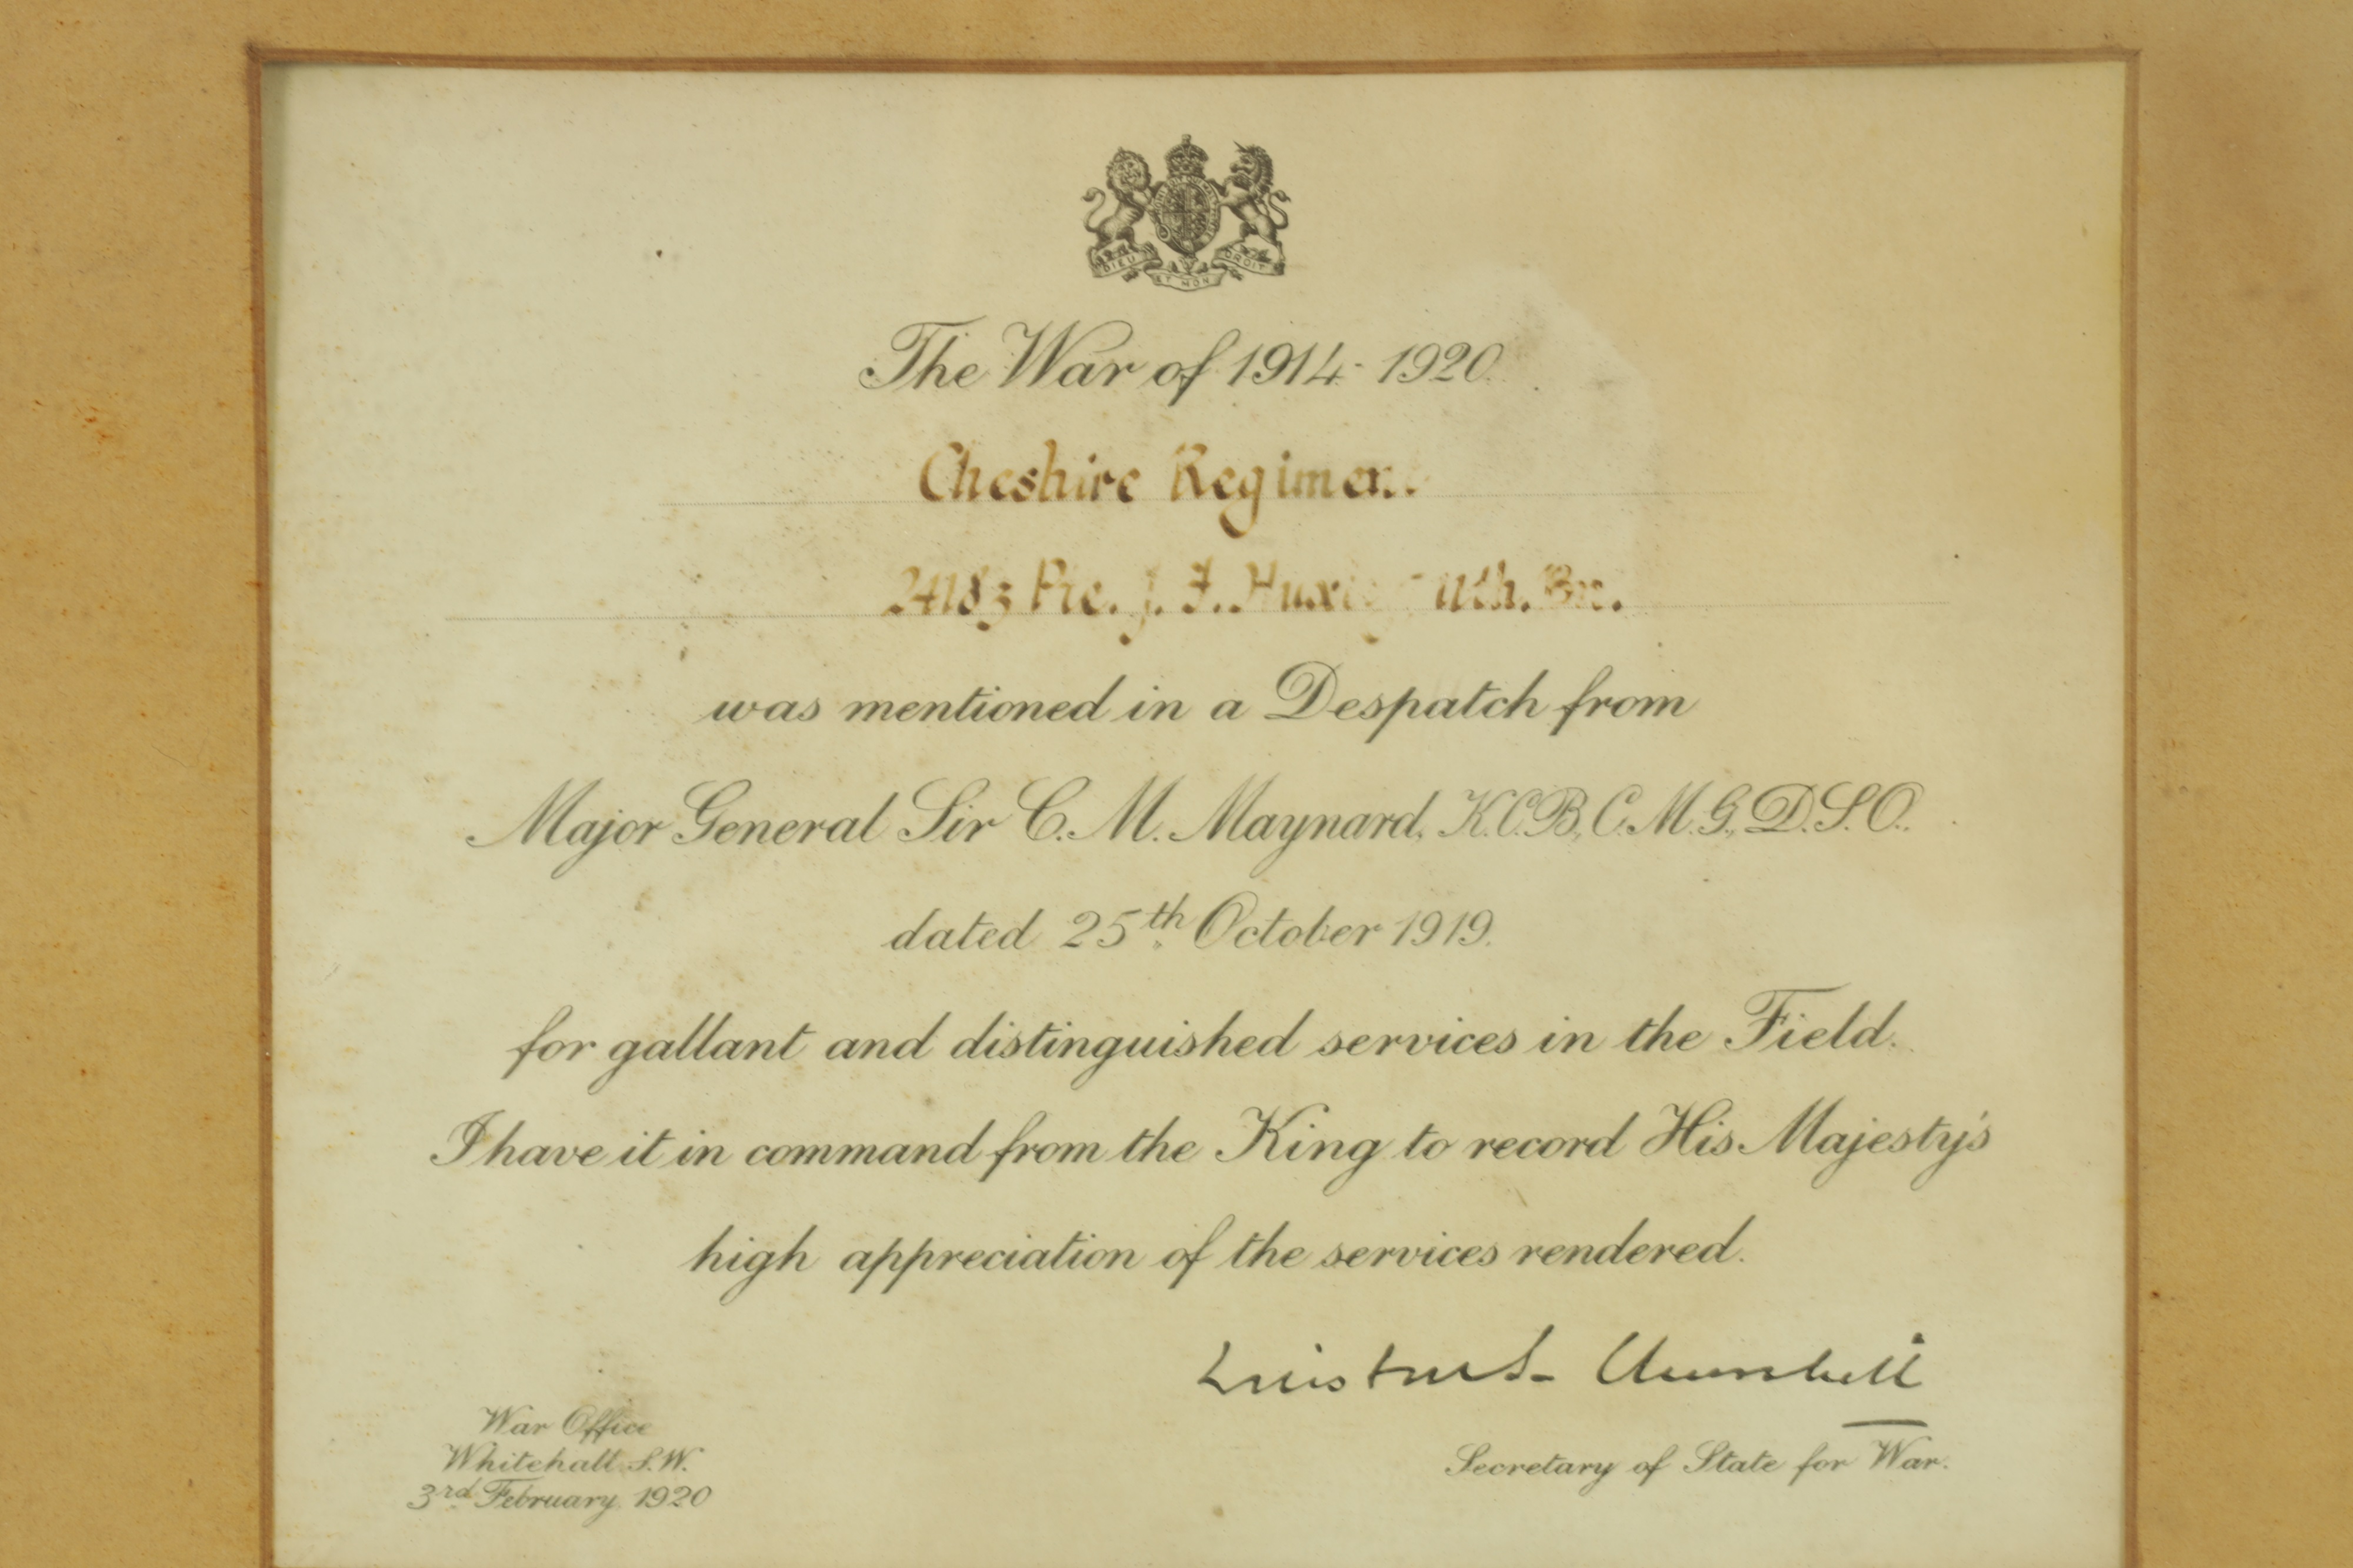 DIEU ET MON DROIT
The War of 1914-1920.
Cheshire Regiment.
24183 Pte. J. F. Huxley 11th. Bn.
was mentioned in a Despatch from
Major General Sir C. M. Maynard, K.C.B., C.M.G., D.S.O.
dated 25th October 1919.
for gallant and distinguished services in the Field.
I have it in command from the King to record His Majesty's
high appreciation of the services rendered.
Winston S. Churchill
War Office
Whitehall S.W.
3rd February 1920
Secretary of State for War.